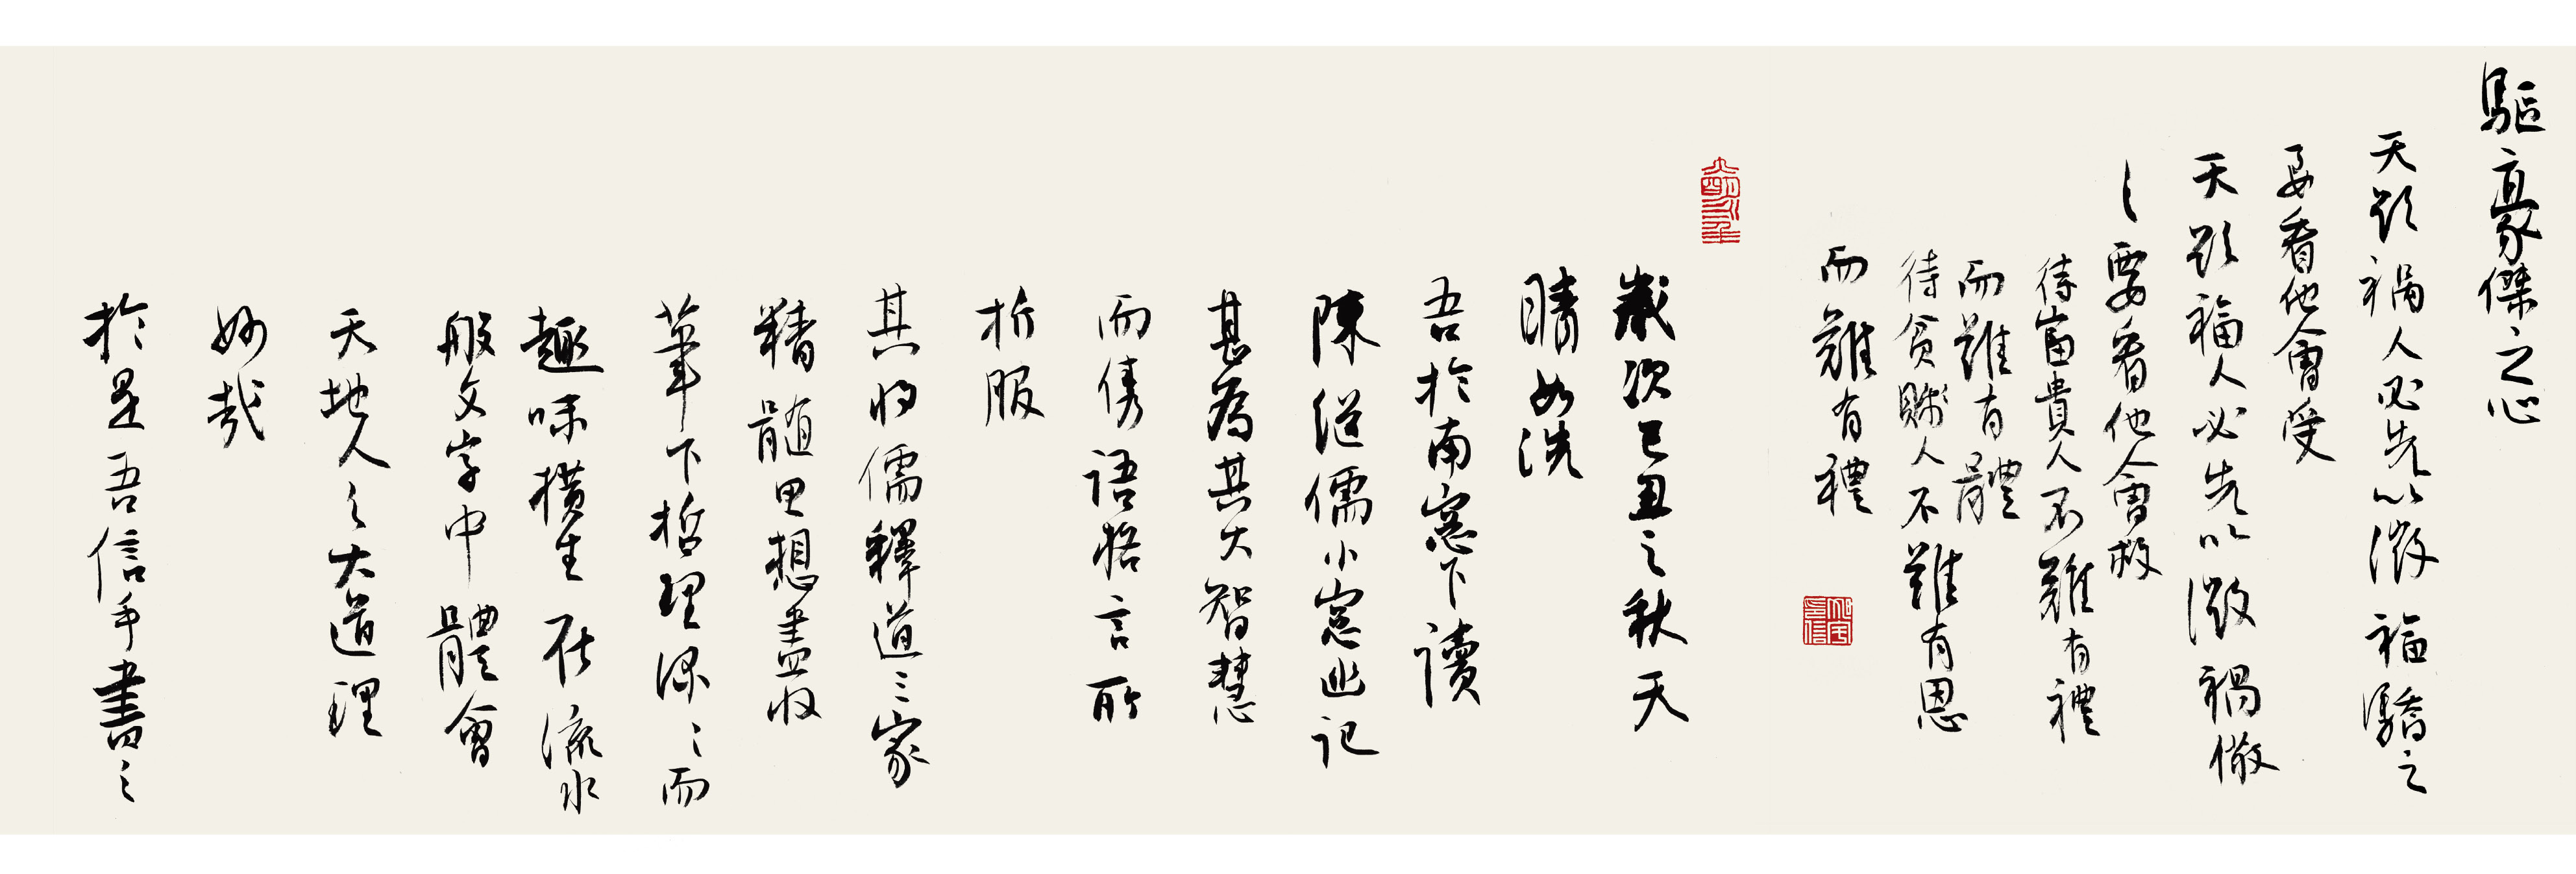 驅豪傑之心
天欲禍人必先以微福驕之
要看他會受
天欲福人必先以微禍儆
之要看他會救
待富貴人不難有禮
而難有體
待貧賤人不難有恩
而難有禮
歲次己丑之秋天
晴如洗
吾於南窓下讀
陳继儒小窓幽记
甚為其大智慧
而雋語格言所
折服
其将儒釋道三家
精髓思想盡收
筆下哲理深〻而
趣味橫生在流水
般文字中體會
天地人之大道理
妙哉
於是吾信手書之